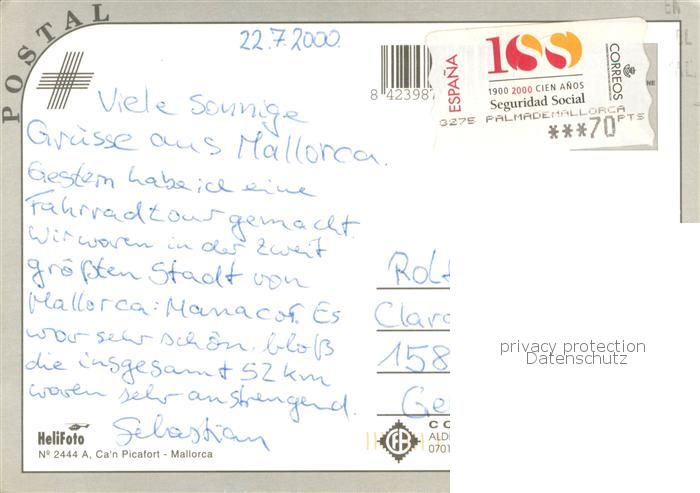 POSTAL
22.7.2000.
Viele Sonnige
Grüsse aus Mallorca.
Gestern habe ich eine
Fahrradtour gemacht.
Wir waren in der zweit
größten Stadt von
Mallorca: Manacor. Es
war sehr schön, bloß
die insgesamt 52 km
waren sehr anstrengend.
Sebastian
HeliFoto
Nº 2444 A, Ca'n Picafort - Mallorca
8 42398
ESPAÑA
100
CORREOS
1900 2000 CIEN AÑOS
Seguridad Social
3275 PALMADEMALLORCA
***70 PTS
158
privacy protection
Datenschutz